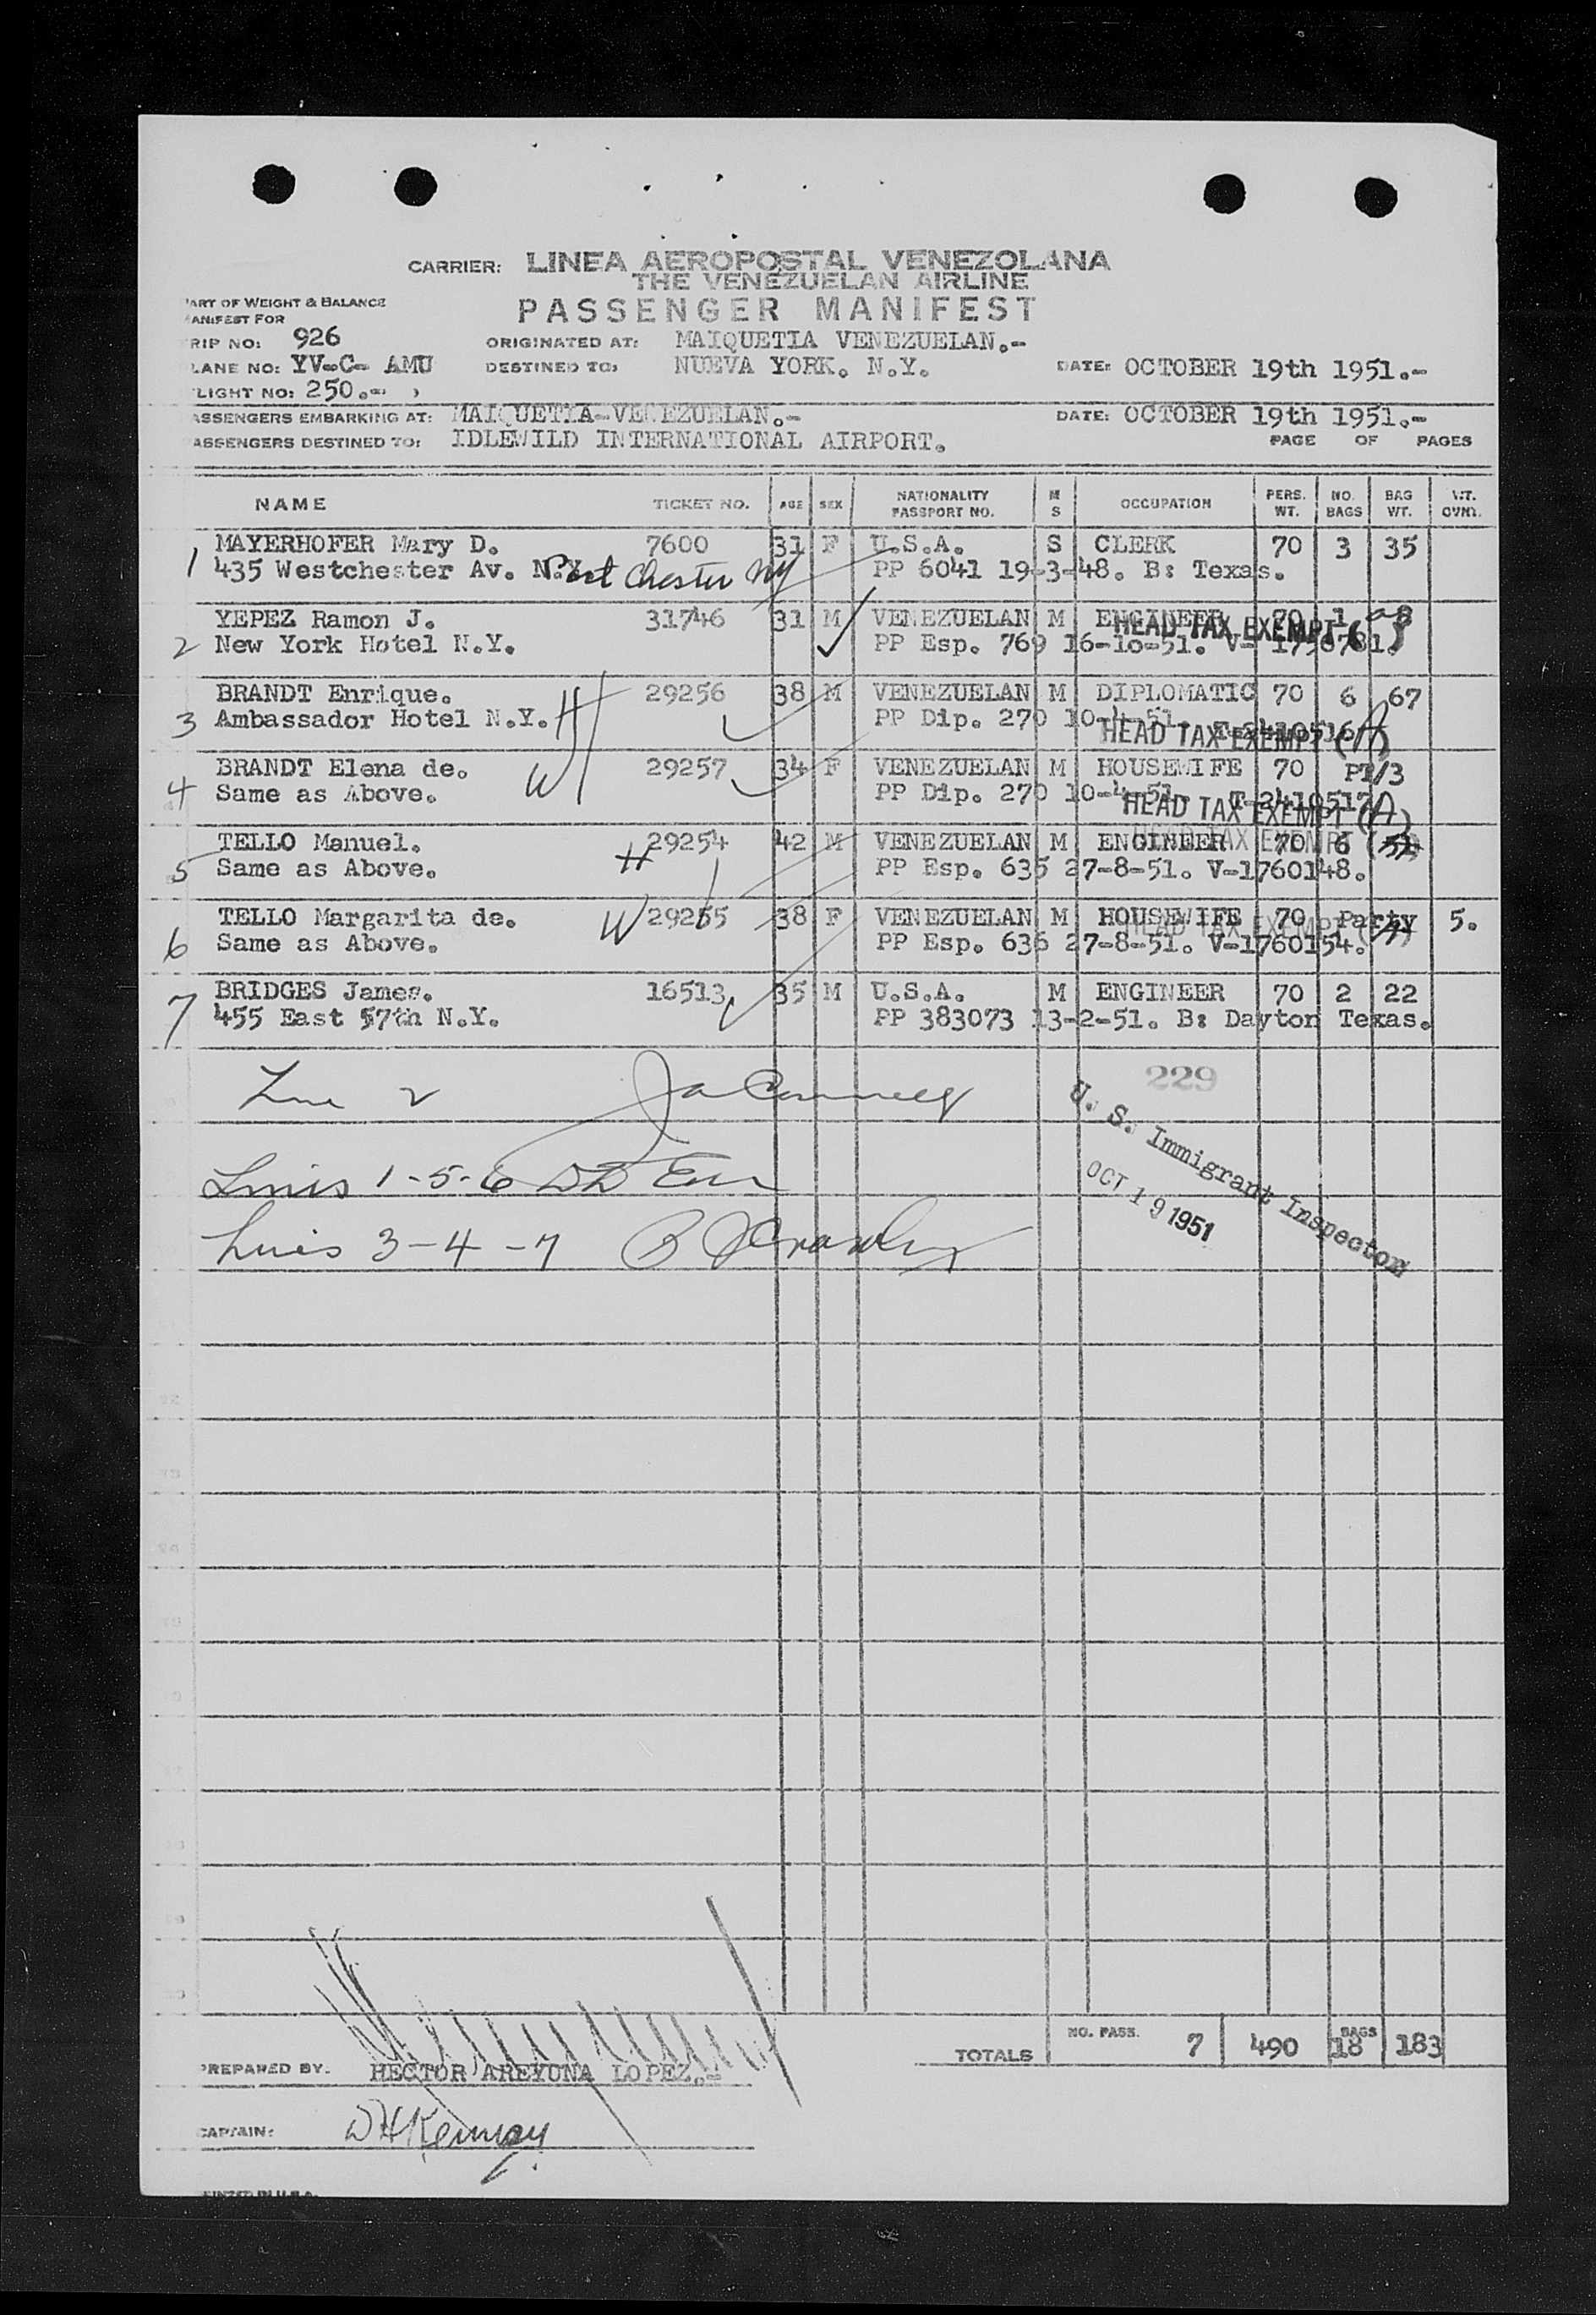 CARRIER: LINEA AEROPOSTAL VENEZOLANA
THE VENEZUELAN AIRLINE
PASSENGER MANIFEST
ART OF WEIGHT & BALANCE
ANIFEST FOR
RIP NO: 926 ORIGINATED AT: MAIQUETIA VENEZUELAN.-
LANE NO: YV-C- AMU DESTINED TO: NUEVA YORK. N.Y. DATE: OCTOBER 19th 1951.-
LIGHT NO: 250.-
ASSENGERS EMBARKING AT: MAIQUETIA-VENEZUELAN.- DATE: OCTOBER 19th 1951.-
ASSENGERS DESTINED TO: IDLEWILD INTERNATIONAL AIRPORT. PAGE OF PAGES
NAME TICKET NO. AGE SEX NATIONALITY PASSPORT NO. M S OCCUPATION PERS. WT. NO. BAGS BAG WT. WT. OVM.
MAYERHOFER Mary D. 7600 31 F U.S.A. S CLERK 70 3 35
1 435 Westchester Av. N.Y. Port Chester NY PP 6041 19-3-48. B: Texas.
YEPEZ Ramon J. 31746 31 M VENEZUELAN M ENGINEER 70 1 8
HEAD TAX EXEMPT
2 New York Hotel N.Y. PP Esp. 769 16-10-51. V-1758781.
BRANDT Enrique. 29256 38 M VENEZUELAN M DIPLOMATIC 70 6 67
3 Ambassador Hotel N.Y. H PP Dip. 270 10-4-51. T-2410516
HEAD TAX EXEMPT (A)
BRANDT Elena de. W 29257 34 F VENEZUELAN M HOUSEWIFE 70 PT/3
4 Same as Above. PP Dip. 270 10-4-51. T-2410517
HEAD TAX EXEMPT (A)
TELLO Manuel. 29254 42 M VENEZUELAN M ENGINEER 70 6
HEAD TAX EXEMPT
5 Same as Above. H PP Esp. 635 27-8-51. V-1760148.
TELLO Margarita de. W 29255 38 F VENEZUELAN M HOUSEWIFE 70 Party 5.
HEAD TAX EXEMPT
6 Same as Above. PP Esp. 636 27-8-51. V-1760154.
BRIDGES James. 16513 35 M U.S.A. M ENGINEER 70 2 22
7 455 East 57th N.Y. PP 383073 13-2-51. B: Dayton Texas.
229
Line 2
U. S. Immigrant Inspector
OCT 19 1951
Lines 1-5-6
Lines 3-4-7
TOTALS NO. PASS. 7 490 BAGS 18 183
PREPARED BY: HECTOR AREYUNA LOPEZ.-
CAPTAIN:
PRINTED IN U.S.A.